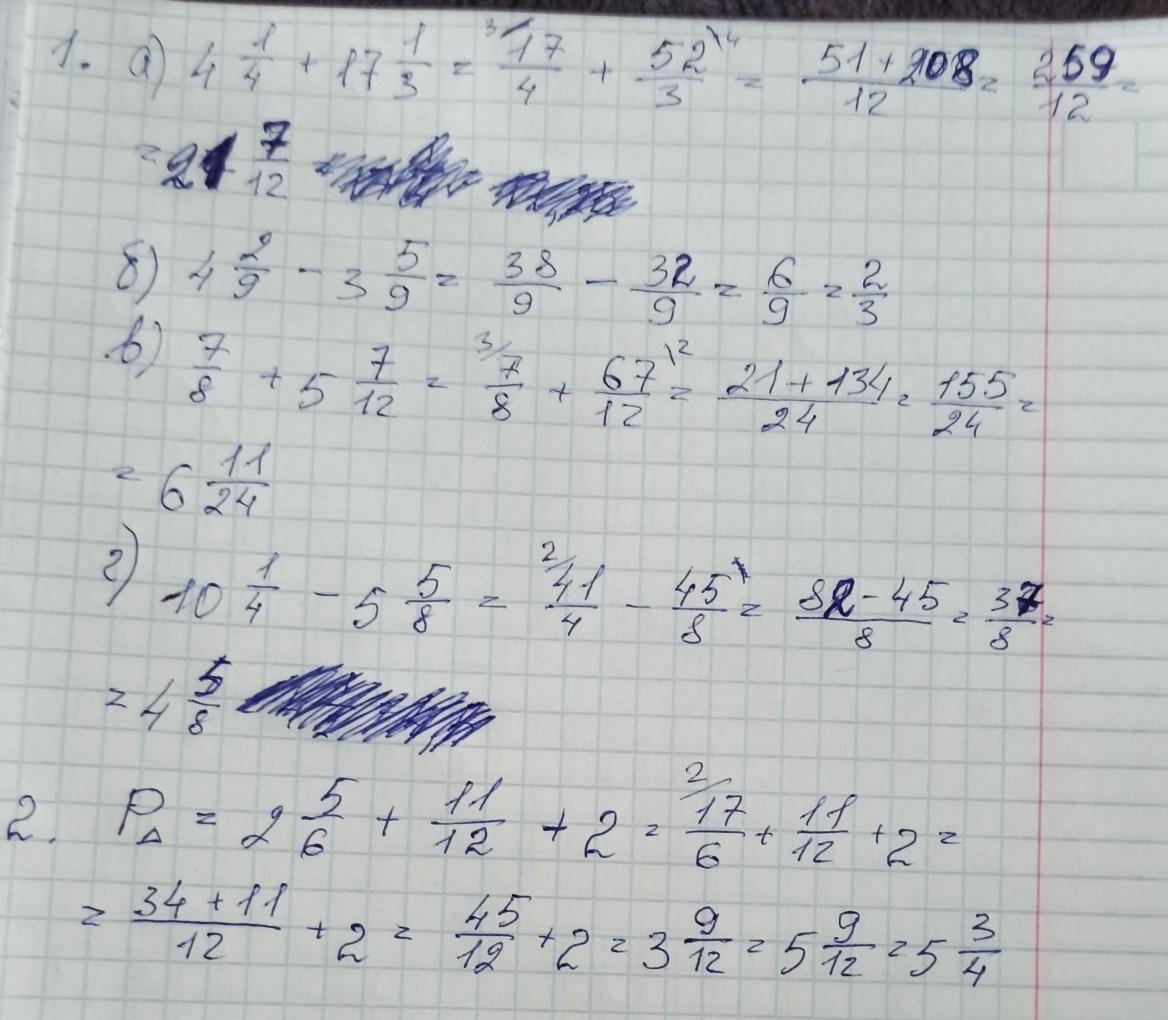 1. а) 4 1/4 + 17 1/3 = 3/ 17/4 + 52/3 \4 = (51+208)/12 = 259/12 =
= 21 7/12
б) 4 2/9 - 3 5/9 = 38/9 - 32/9 = 6/9 = 2/3
в) 7/8 + 5 7/12 = 3/ 7/8 + 67/12 \2 = (21+134)/24 = 155/24 =
= 6 11/24
г) 10 1/4 - 5 5/8 = 2/ 41/4 - 45/8 \1 = (82-45)/8 = 37/8 =
= 4 5/8
2. P△ = 2 5/6 + 11/12 + 2 = 2/ 17/6 + 11/12 + 2 =
= (34+11)/12 + 2 = 45/12 + 2 = 3 9/12 = 5 9/12 = 5 3/4